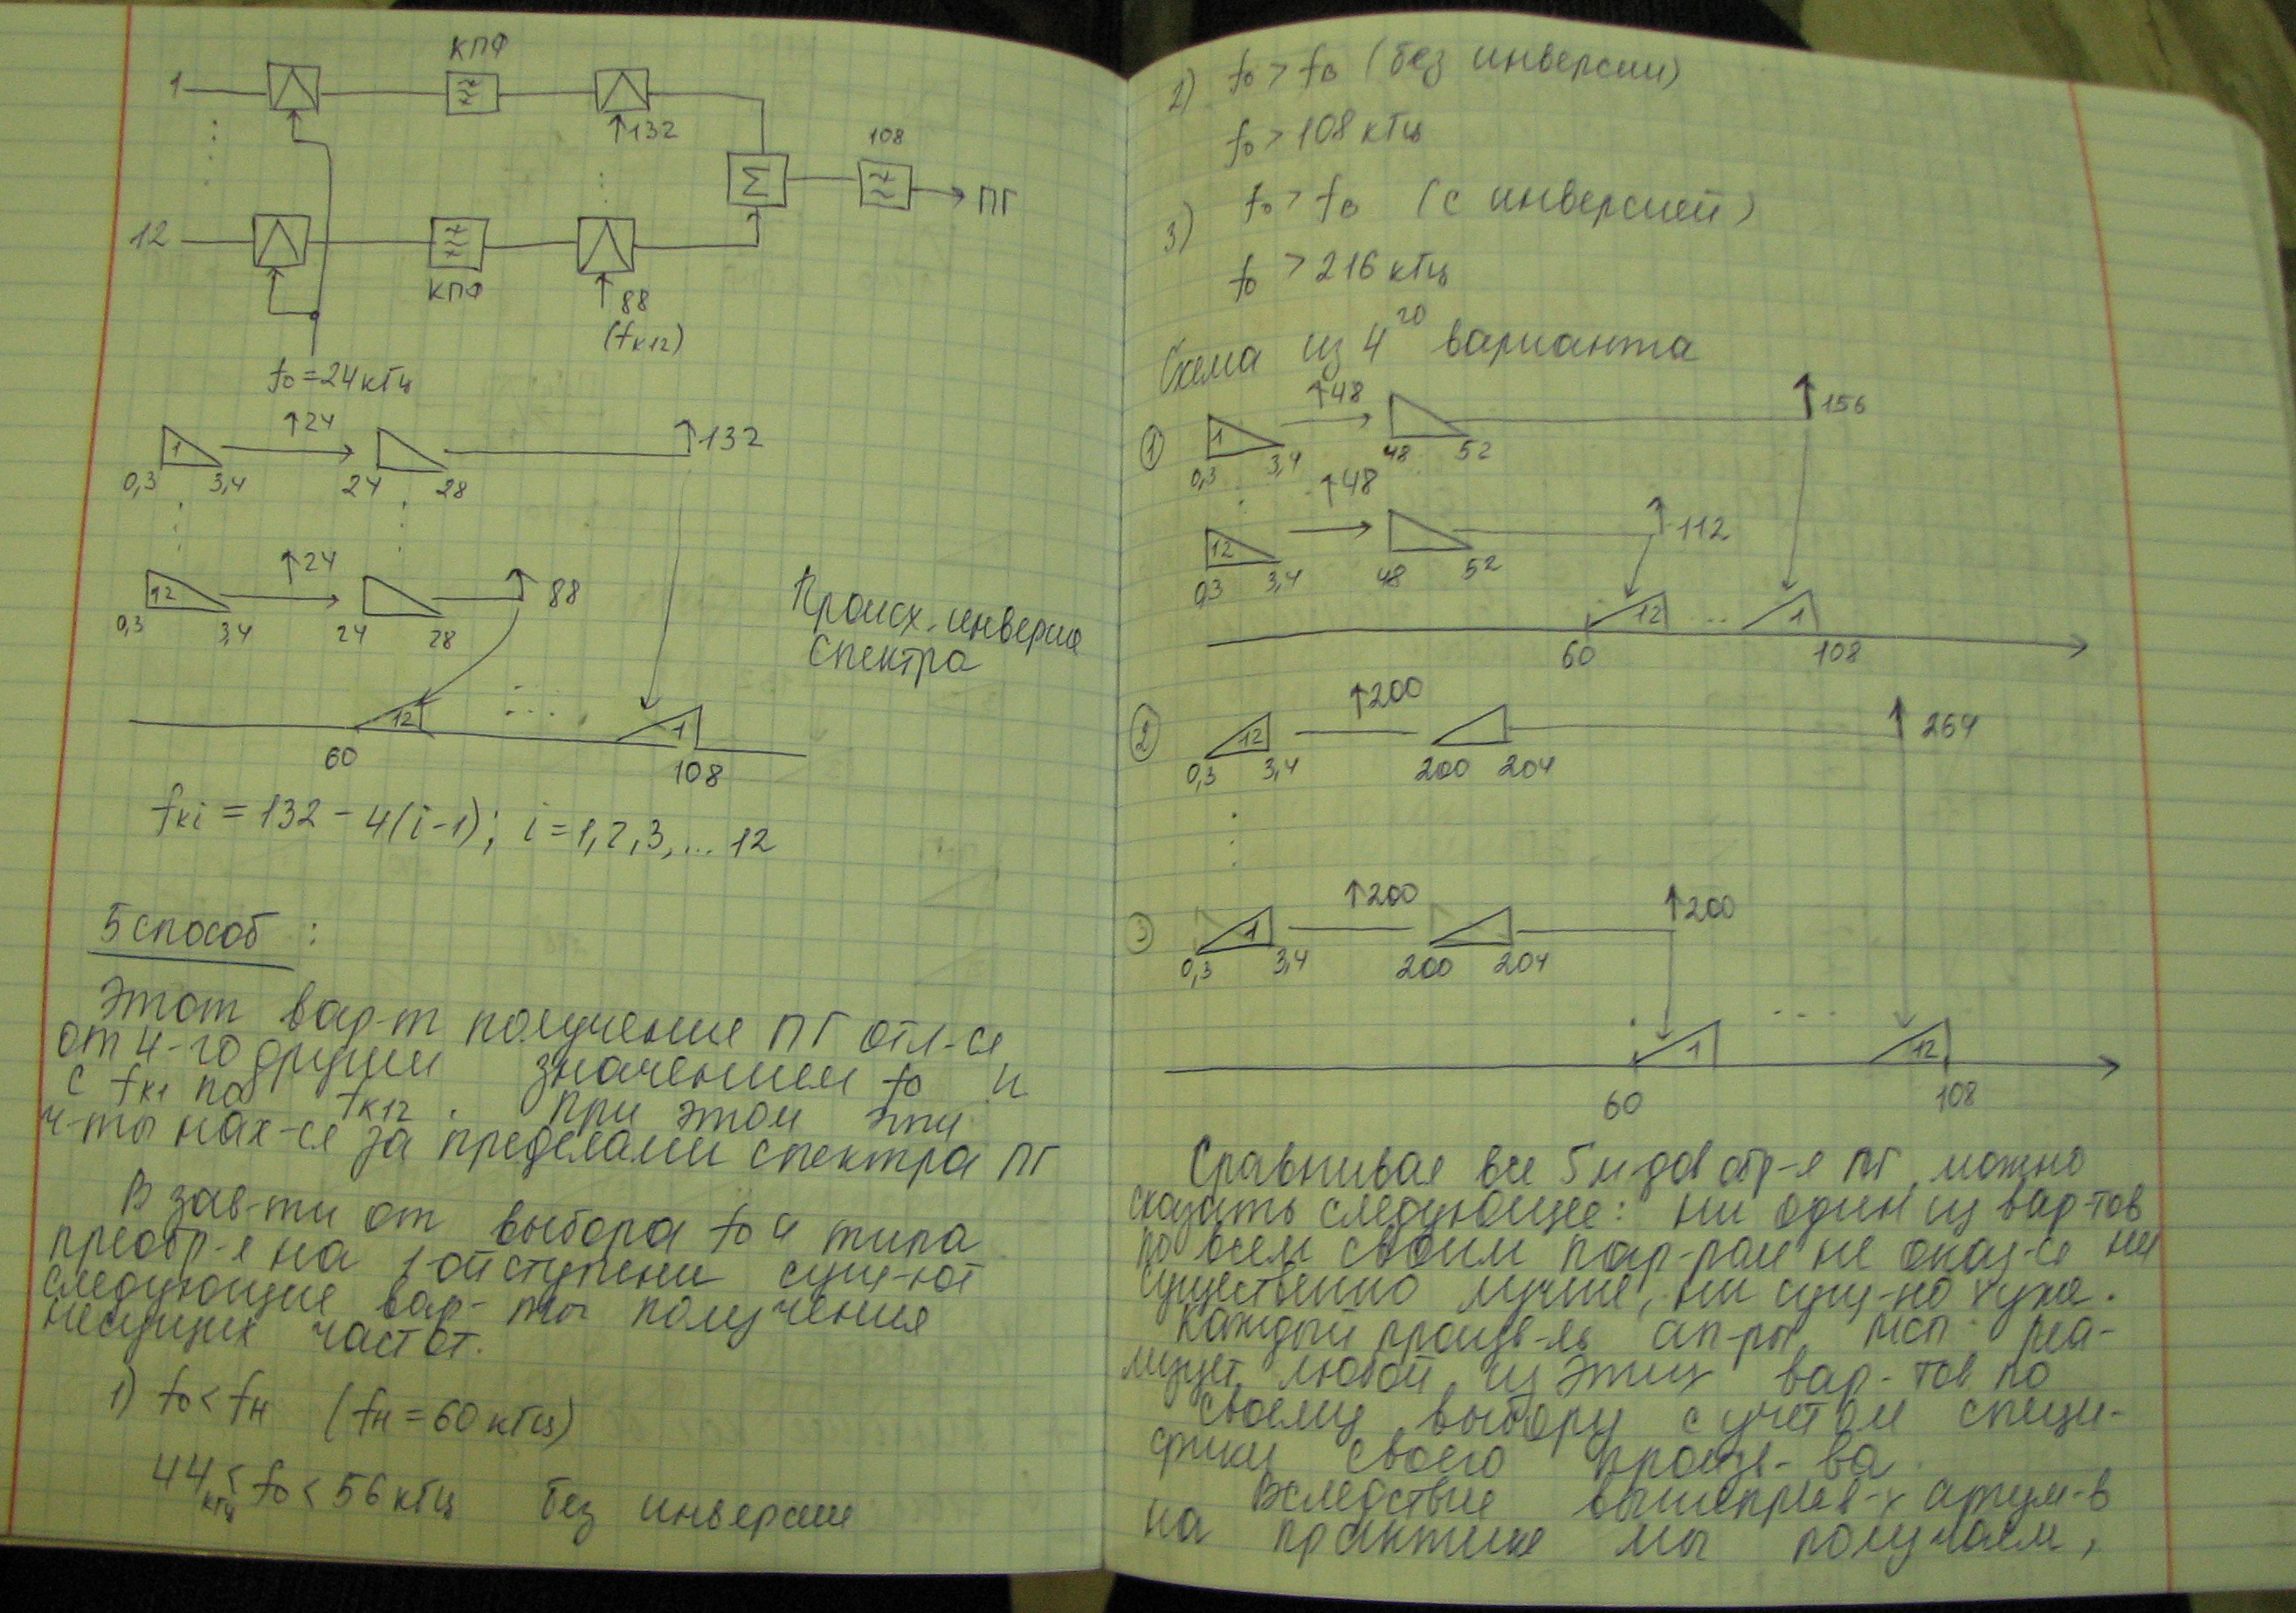 КПФ
1
↑132
108
Σ
ПГ
12
КПФ
↑88
(fк12)
f0=24кГц
↑24
↑132
1
0,3 3,4 24 28
↑24
↑88
12
0,3 3,4 24 28
Происх. инверсия
спектра
12 ... 1
60 108
fкi = 132 - 4(i-1); i=1,2,3,... 12
5 способ :
Этот вар-т получения ПГ отл-ся
от 4-го другим значением f0 и
с fк1 по fк12 . При этом эти
ч-ты нах-ся за пределами спектра ПГ
В зав-ти от выбора f0 и типа
преобр-я на 1-ой ступени сущ-ют
следующие вар-ты получения
несущих частот.
1) f0 < fн (fн=60 кГц)
44 кГц < f0 < 56 кГц без инверсии
2) f0 > fв (без инверсии)
f0 > 108 кГц
3) f0 > fв (с инверсией)
f0 > 216 кГц
Схема из 4го варианта
1 ↑48 ↑156
1
0,3 3,4 48 52
↑48 ↑112
12
0,3 3,4 48 52
12 ... 1
60 108
2 ↑200 ↑264
12
0,3 3,4 200 204
3 ↑200 ↑200
1
0,3 3,4 200 204
1 ... 12
60 108
Сравнивая все 5 м-дов обр-я ПГ, можно
сказать следующее: ни один из вар-тов
по всем своим пар-рам не оказ-ся ни
существенно лучше, ни сущ-но хуже.
Каждый произв-ль ап-ры МСП реа-
лизует любой из этих вар-тов по
своему выбору с учетом специ-
фики своего произв-ва.
Вследствие вышеприв-х аргум-в
на практике мы получаем,